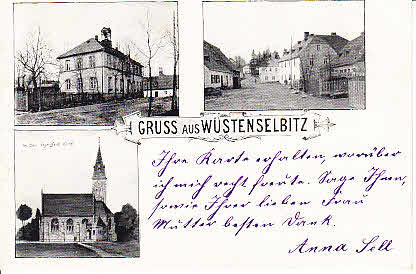 GRUSS AUS WÜSTENSELBITZ
Ihre Karte erhalten, worüber
ich mich recht freute. Sage Ihnen,
sowie Ihrer lieben Frau
Mutter besten Dank.
Anna Sell